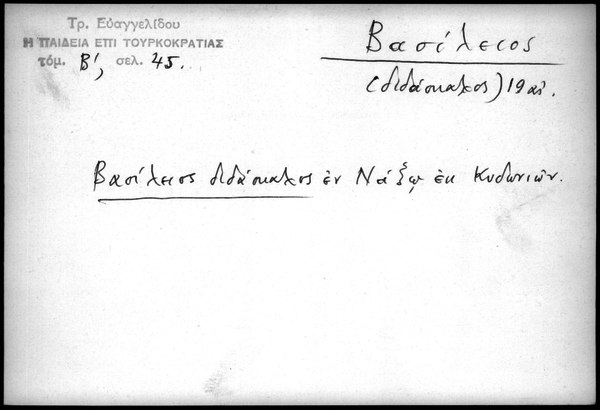 Τρ. Εὐαγγελίδου
Η ΠΑΙΔΕΙΑ ΕΠΙ ΤΟΥΡΚΟΚΡΑΤΙΑΣ
τόμ. Β', σελ. 45.
Βασίλειος
(διδάσκαλος) 19 αἰ.
Βασίλειος διδάσκαλος ἐν Νάξῳ ἐκ Κυδωνιῶν.